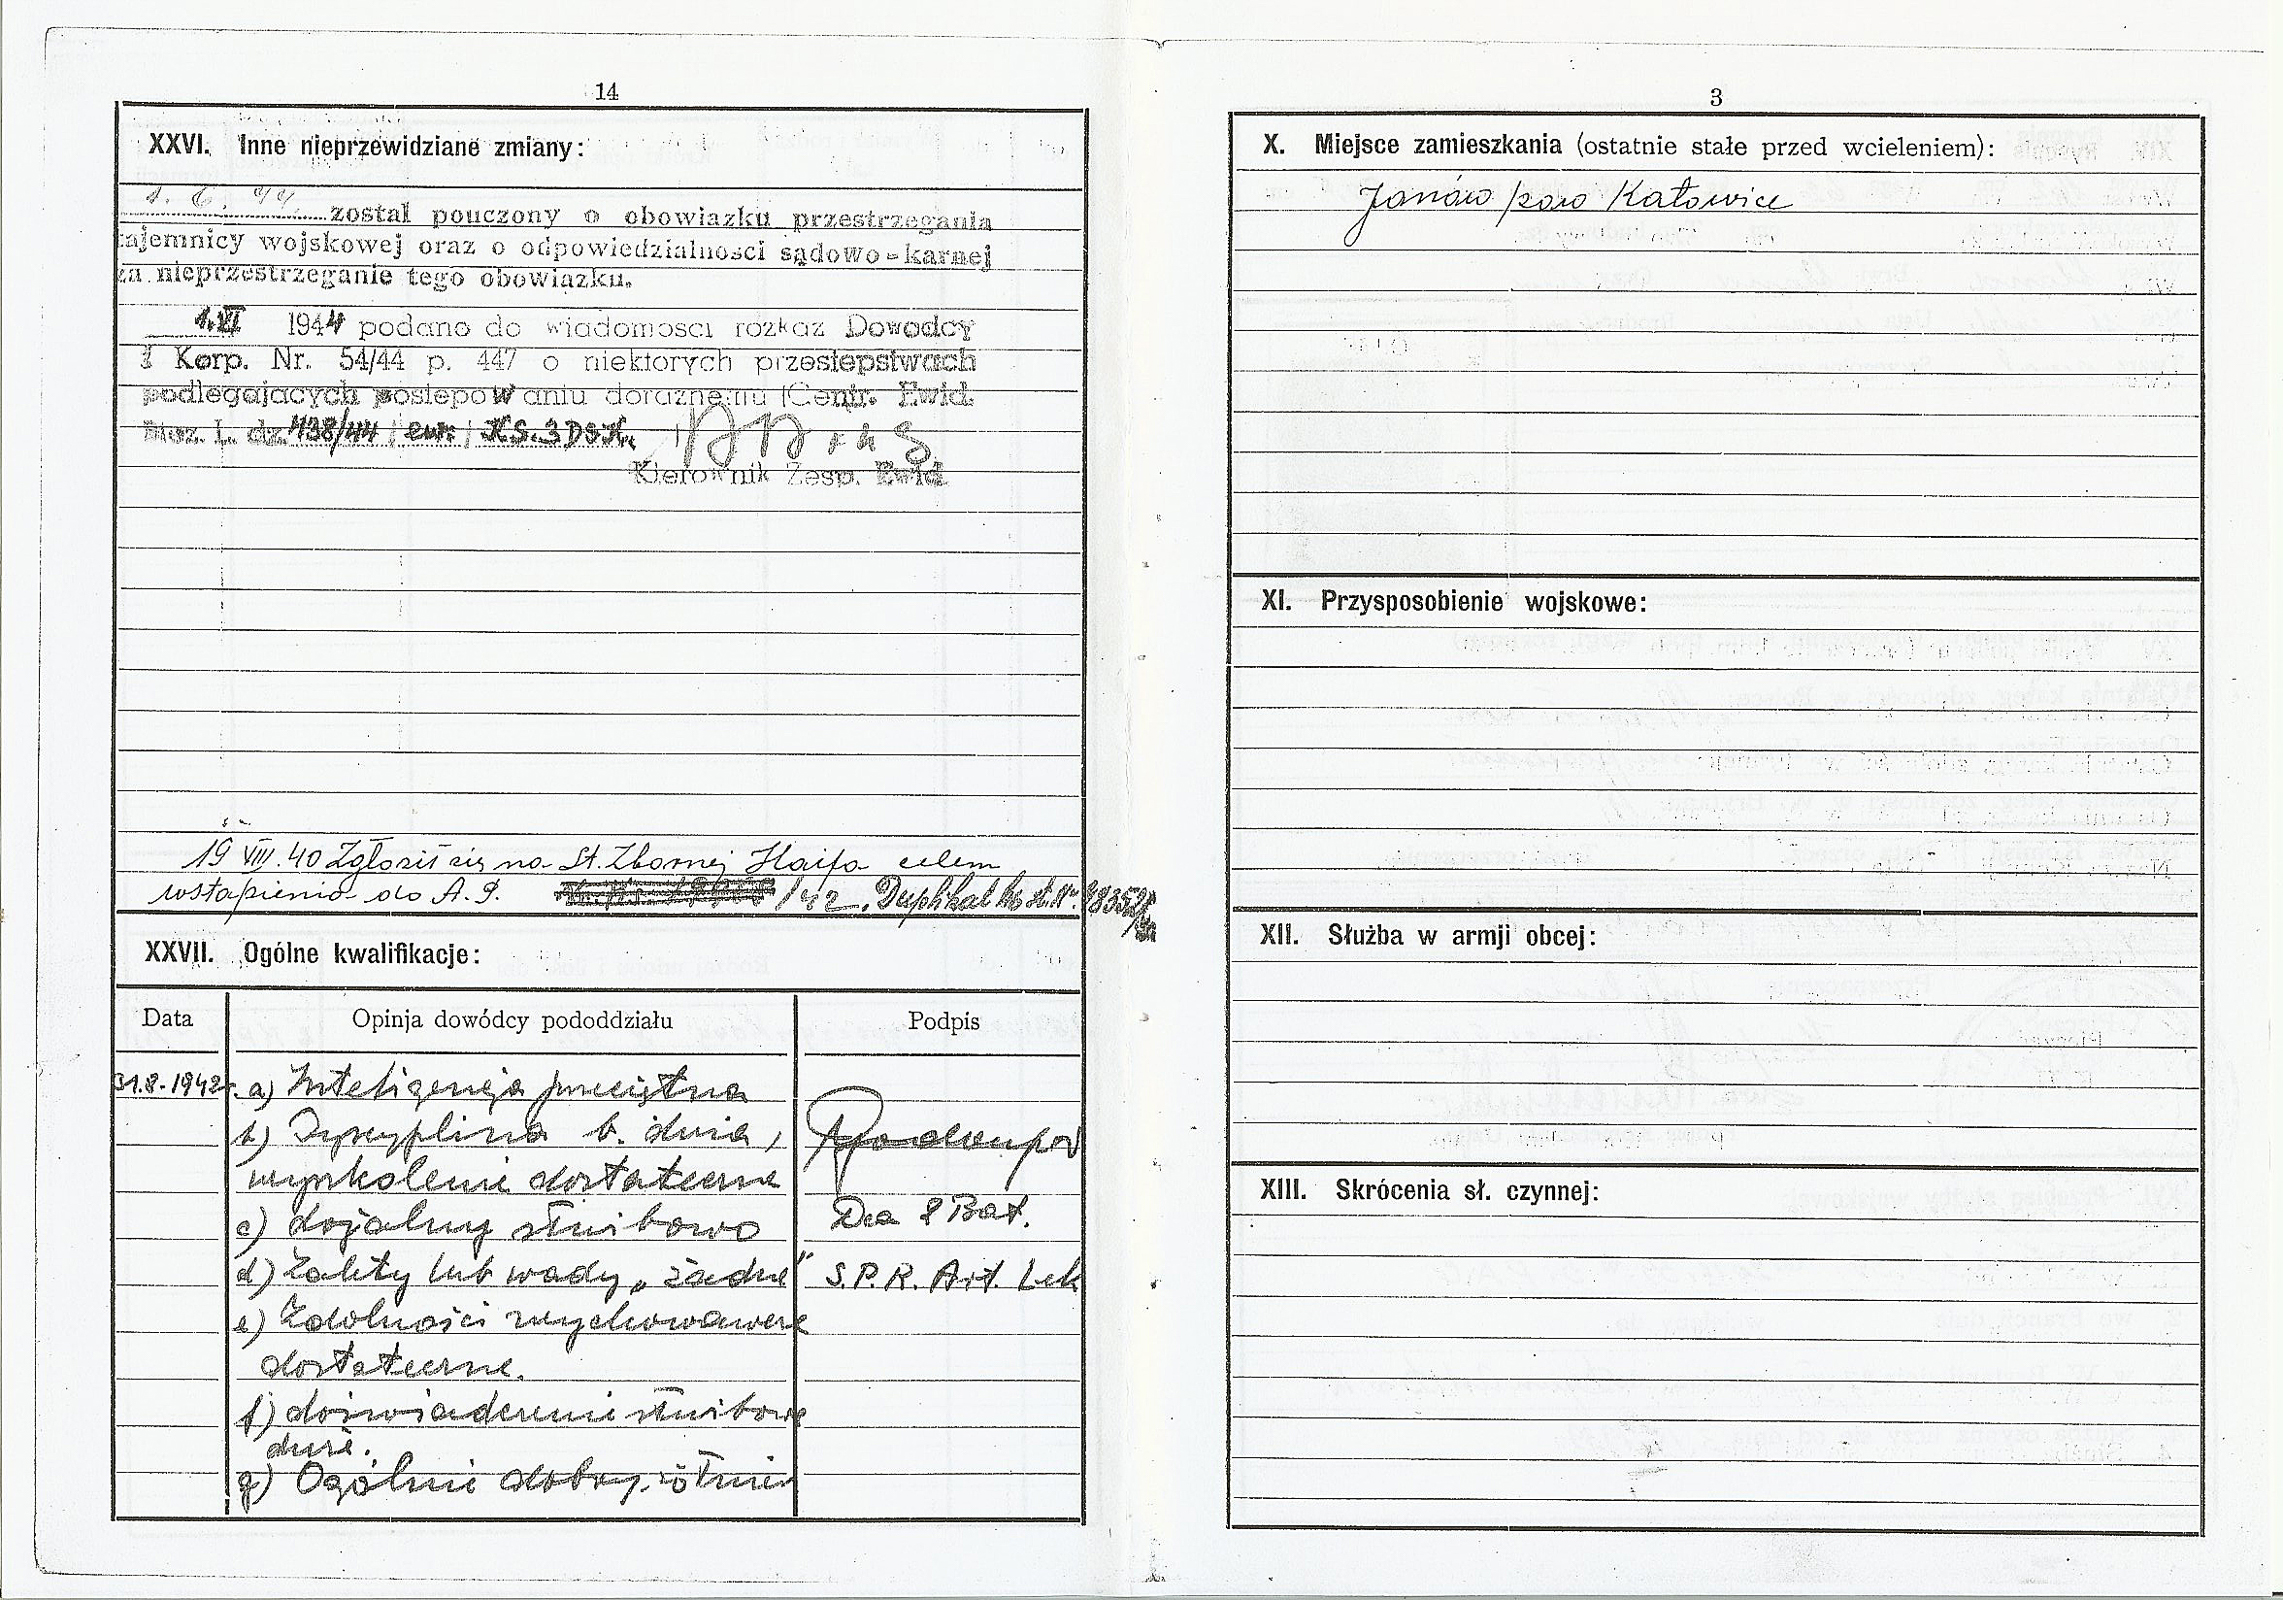 14
XXVI. Inne nieprzewidziane zmiany:
1. 6. 44 został pouczony o obowiązku przestrzegania
tajemnicy wojskowej oraz o odpowiedzialności sądowo-karnej
za nieprzestrzeganie tego obowiązku.
1.VI 1944 podano do wiadomosci rozkaz Dowodcy
Korp. Nr. 54/44 p. 447 o niektorych przestepstwach
podlegajacych postepowaniu doraznemu (Centr. Ewid.
L. dz. 438/44 / ew. /
Kierownik Zesp. Ewid.
19 VIII.40 Zgłosił się na St. Zbornej Haifa celem
wstąpienia do A.P. /42. Duplikat
XXVII. Ogólne kwalifikacje:
Data Opinja dowódcy pododdziału Podpis
31.8.-1942r. a) Inteligencja przeciętna
b) Dyscyplina b. duża,
wyszkolenie dostateczne
c) lojalny służbowo Dca 2 Bat.
d) Zalety lub wady „żadne" S.P.R. Art. Lek
e) Zdolności wychowawcze
dostateczne.
f) doświadczenie służbowe
duże.
g) Ogólnie dobry żołnierz
3
X. Miejsce zamieszkania (ostatnie stałe przed wcieleniem):
Janów pow Katowice
XI. Przysposobienie wojskowe:
XII. Służba w armji obcej:
XIII. Skrócenia sł. czynnej: